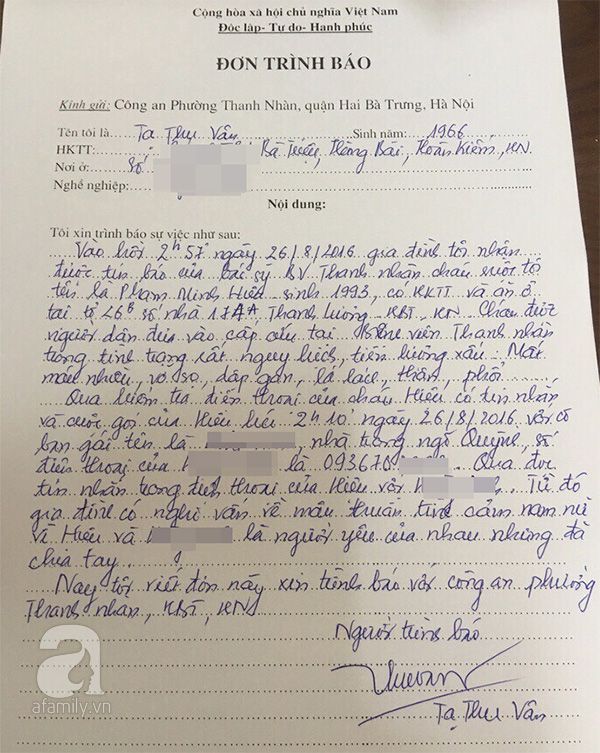 Cộng hòa xã hội chủ nghĩa Việt Nam
Độc lập- Tự do- Hạnh phúc
ĐƠN TRÌNH BÁO
Kính gửi: Công an Phường Thanh Nhàn, quận Hai Bà Trưng, Hà Nội
Tên tôi là Tạ Thu Vân Sinh năm: 1966
HKTT: Bà Triệu, Hàng Bài, Hoàn Kiếm, HN
Nơi ở: Số
Nghề nghiệp:
Nội dung:
Tôi xin trình báo sự việc như sau:
Vào hồi 2h57 ngày 26/8/2016 gia đình tôi nhận
được tin báo của bác sỹ BV Thanh nhàn cháu ruột tôi
tên là Phạm Minh Hiếu sinh 1993, có HKTT và ăn ở
tại tổ 26B số nhà Thanh lương HBT, HN Cháu được
người dân đưa vào cấp cứu tại Bệnh viện Thanh nhàn
trong tình trạng rất nguy kịch, tiên lượng xấu. Mất
máu nhiều, vỡ sọ, dập gan, lá lách, thận, phổi
Qua kiểm tra điện thoại của cháu Hiếu có tin nhắn
và cuộc gọi của Hiếu lúc 2h10' ngày 26/8/2016 với cô
bạn gái tên là nhà trong ngõ Quỳnh, số
điện thoại của là 0936709 Qua đọc
tin nhắn trong điện thoại của Hiếu với Từ đó
gia đình có nghi vấn về mâu thuẫn tình cảm nam nữ
vì Hiếu và là người yêu của nhau nhưng đã
chia tay.
Nay tôi viết đơn này xin trình báo với công an phường
Thanh nhàn, HBT, HN
Người trình báo
Tạ Thu Vân
a
afamily.vn